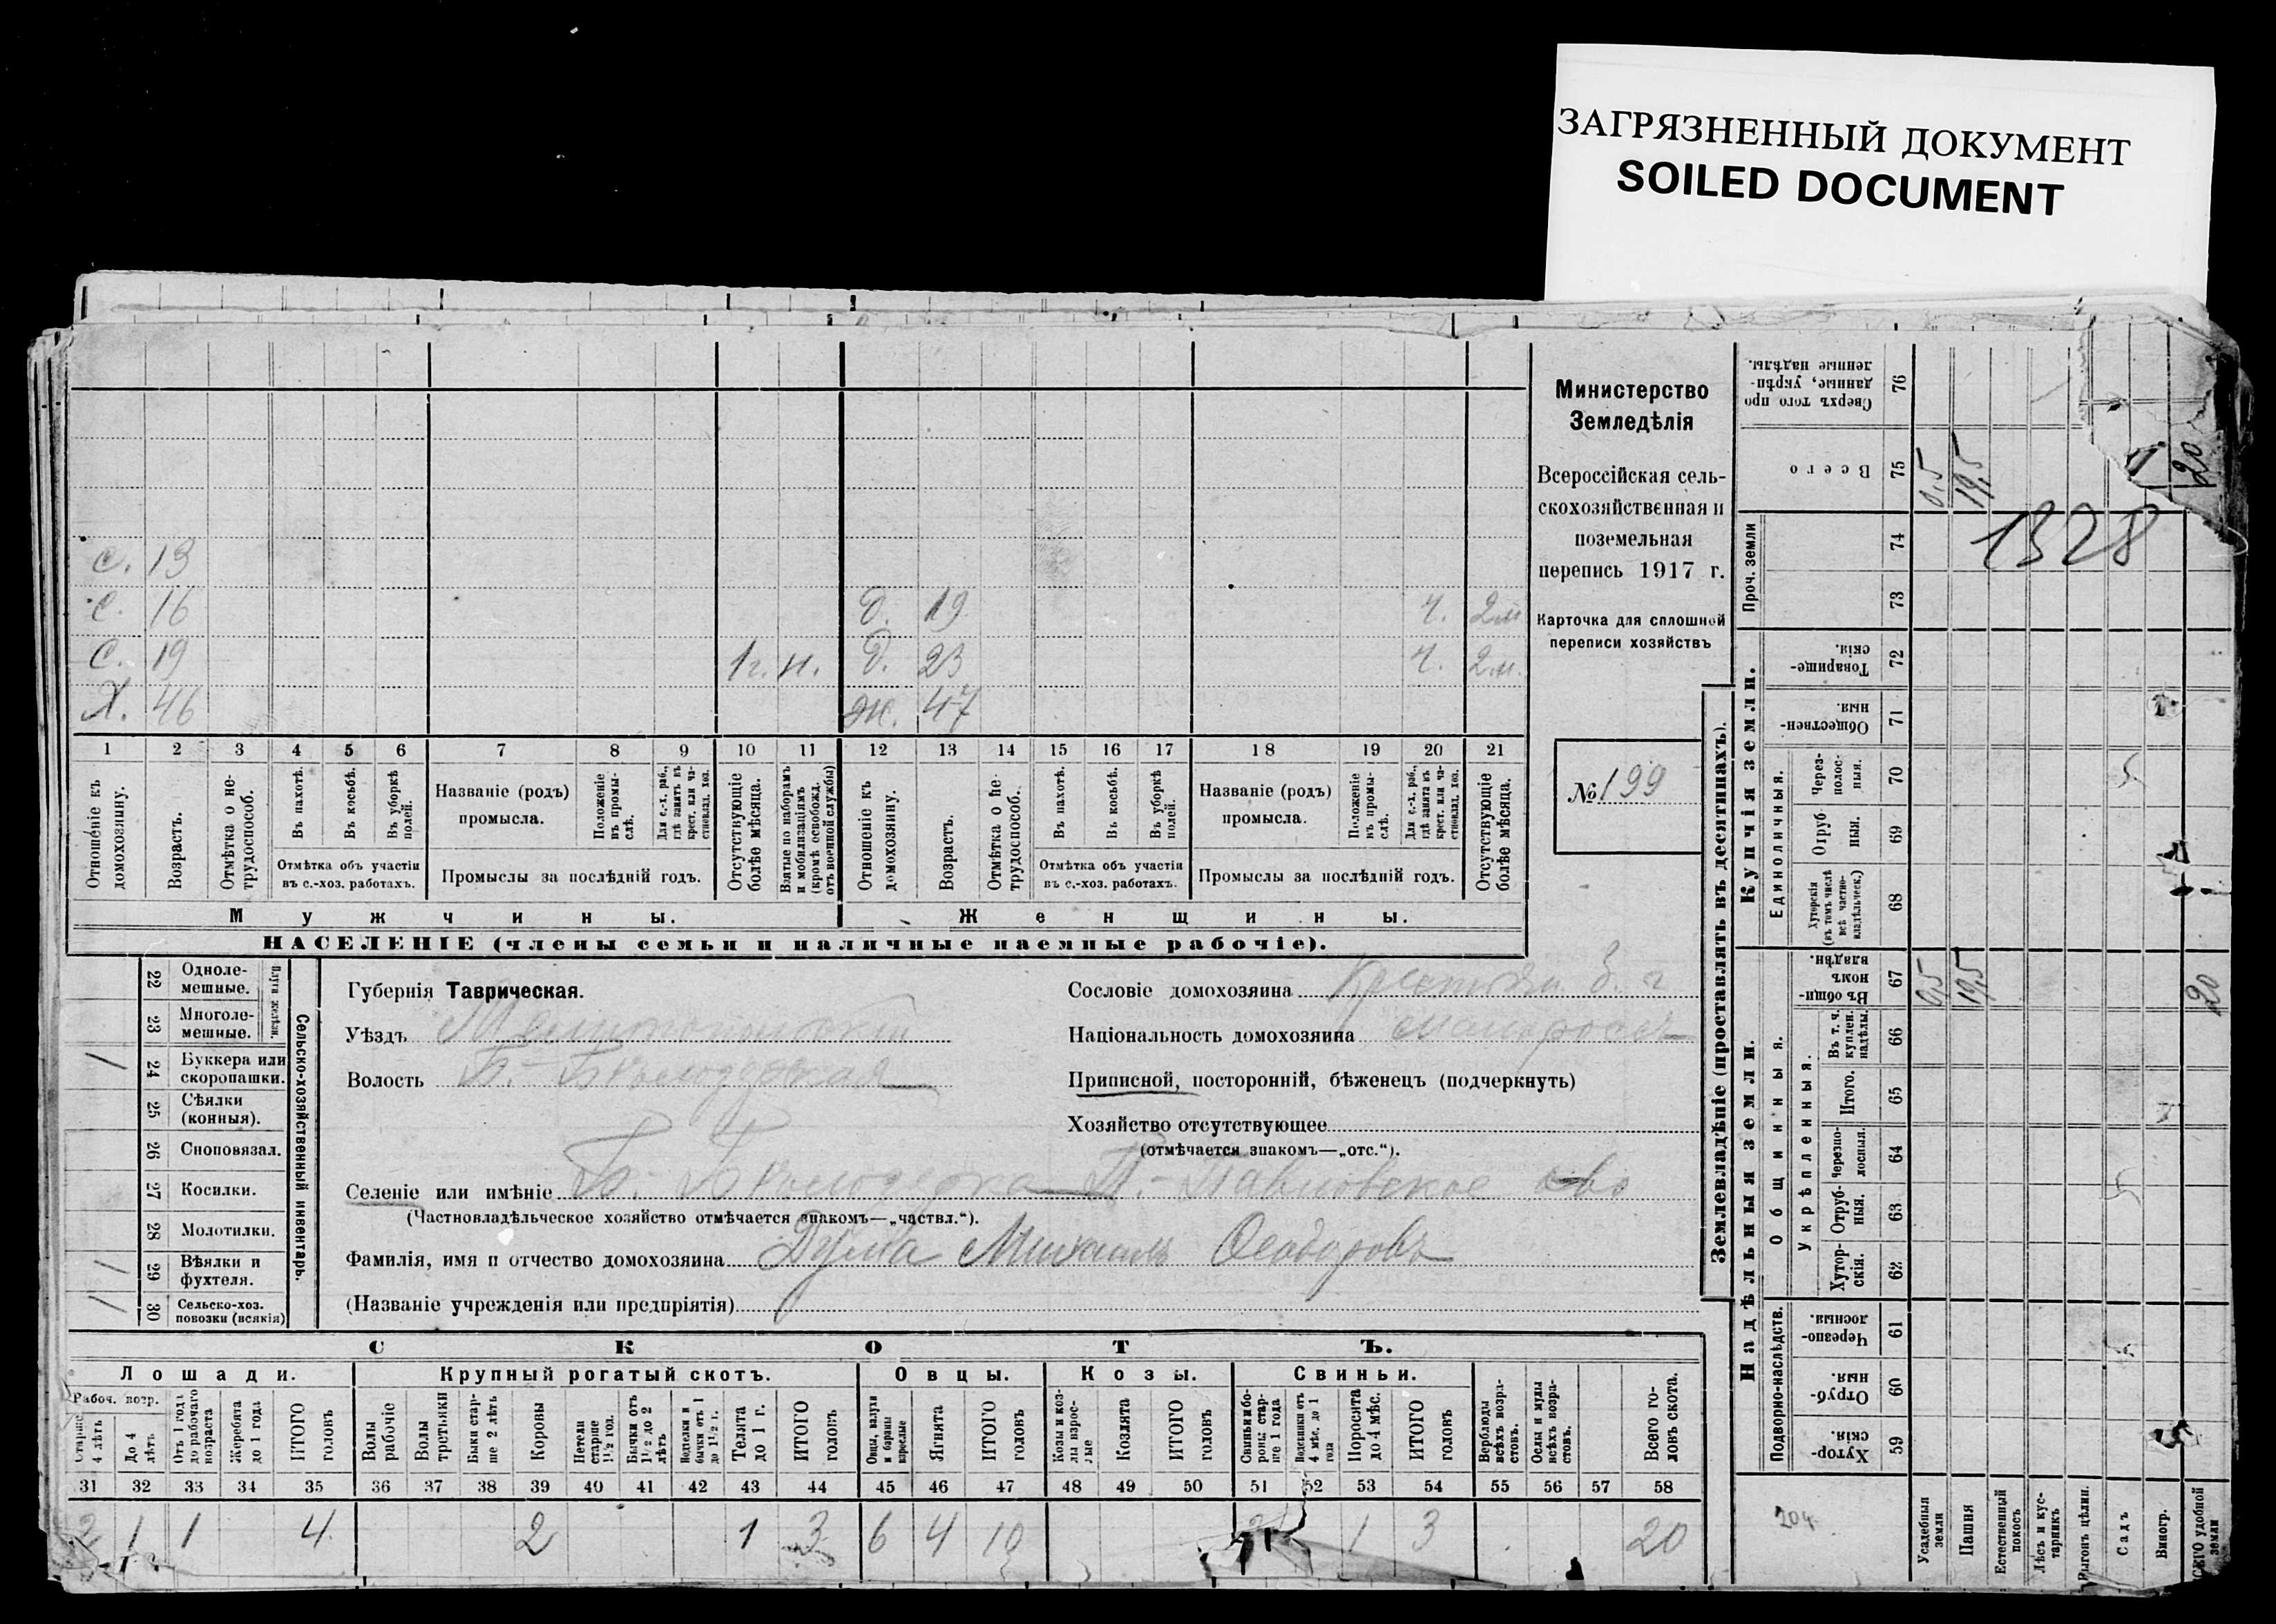 ЗАГРЯЗНЕННЫЙ ДОКУМЕНТ
SOILED DOCUMENT
Министерство
Земледѣлія
Всероссійская сель-
скохозяйственная и
поземельная
перепись 1917 г.
Карточка для сплошной
переписи хозяйствъ
№ 199
с. 13
с. 16 д. 19 ч. 2 м
с. 19 1 г. н. д. 23 ч. 2 м.
Х. 46 ж. 47
1 2 3 4 5 6 7 8 9 10 11 12 13 14 15 16 17 18 19 20 21
Отношеніе къ домохозяину.
Возрастъ.
Отмѣтка о не-трудоспособ.
Въ пахотѣ.
Въ косьбѣ.
Въ уборкѣ полей.
Отмѣтка объ участіи
въ с.-хоз. работахъ.
Названіе (родъ)
промысла.
Положеніе въ промы-слѣ.
Для с.-х. раб., гдѣ занятъ въ крест. или ча-стновлад. хоз.
Промыслы за послѣдній годъ.
Отсутствующіе болѣе мѣсяца.
Взятые по наборамъ и мобилизаціямъ (кромѣ освобожд. отъ военной службы)
Отношеніе къ домохозяину.
Возрастъ.
Отмѣтка о не-трудоспособ.
Въ пахотѣ.
Въ косьбѣ.
Въ уборкѣ полей.
Отмѣтка объ участіи
въ с.-хоз. работахъ.
Названіе (родъ)
промысла.
Положеніе въ промы-слѣ.
Для с.-х. раб., гдѣ занята въ крест. или ча-стновлад. хоз.
Промыслы за послѣдній годъ.
Отсутствующіе болѣе мѣсяца.
Мужчины. Женщины.
НАСЕЛЕНІЕ (члены семьи и наличные наемные рабочіе).
Сельско-хозяйственный инвентарь.
Плуги желѣзн.
22 Одноле-мешные.
23 Многоле-мешные.
/ 24 Буккера или скоропашки.
25 Сѣялки (конныя).
26 Сноповязал.
27 Косилки.
28 Молотилки.
/ 29 Вѣялки и фухтеля.
/ 30 Сельско-хоз. повозки (всякія)
Губернія Таврическая.
Уѣздъ Мелитопольскій
Волость Б.-Бѣлозерская
Сословіе домохозяина
Національность домохозяина малоросъ
Приписной, посторонній, бѣженецъ (подчеркнуть)
Хозяйство отсутствующее
(отмѣчается знакомъ—„отс.“).
Селеніе или имѣніе Б.-Бѣлозерка П.-Павловское о-во
(Частновладѣльческое хозяйство отмѣчается знакомъ—„частвл.“).
Фамилія, имя и отчество домохозяина Дума Михаилъ Ѳеодоровъ
(Названіе учрежденія или предпріятія)
СКОТЪ.
Лошади. Крупный рогатый скотъ. Овцы. Козы. Свиньи.
Рабоч. возр.
Старше 4 лѣтъ
До 4 лѣтъ.
Отъ 1 года до рабочаго возраста
Жеребята до 1 года
ИТОГО головъ
Волы рабочіе
Волы третьяки
Быки стар-ше 2 лѣтъ
Коровы
Нетели старше 1½ год.
Бычки отъ 1½ до 2 лѣтъ
Подтелки и бычки отъ 1 до 1½ г.
Телята до 1 г.
ИТОГО головъ
Овцы, валухи и бараны взрослые
Ягнята
ИТОГО головъ
Козы и коз-лы взрос-лые
Козлята
ИТОГО головъ
Свиньи и бо-ровы стар-ше 1 года
Подсвинки отъ 4 мѣс. до 1 года
Поросята до 4 мѣс.
ИТОГО головъ
Верблюды всѣхъ возра-стовъ.
Ослы и мулы всѣхъ возра-стовъ.
Всего го-ловъ скота.
31 32 33 34 35 36 37 38 39 40 41 42 43 44 45 46 47 48 49 50 51 52 53 54 55 56 57 58
2 1 1 4 2 1 3 6 4 10 1 3 20
Землевладѣніе (проставлять въ десятинахъ).
Надѣльныя земли. Купчія земли.
Проч. земли
Подворно-наслѣдств.
Общинныя.
Укрѣпленныя.
Единоличныя.
Сверхъ того про-данные, укрѣп-ленные надѣлы. 76
Всего 75
74
73
Товарище-скія. 72
Обществен-ныя. 71
Через-полос-ныя. 70
Отруб-ныя. 69
Хуторскія (въ томъ числѣ всѣ частно-владѣльческ.) 68
Въ общи-номъ владѣн. 67
Въ т. ч. куплен. надѣлы. 66
Итого. 65
Черезпо-лосныя. 64
Отруб-ныя. 63
Хутор-скія. 62
Черезпо-лосныя. 61
Отруб-ныя. 60
Хутор-скія. 59
0,5 19,5 20
1328
0,5 19,5 20
204
Усадебныя земли
Пашня
Естественный покосъ
Лѣсъ и кус-тарникъ
Выгонъ цѣлин.
Садъ
Виногр.
ВСЕГО удобной земли